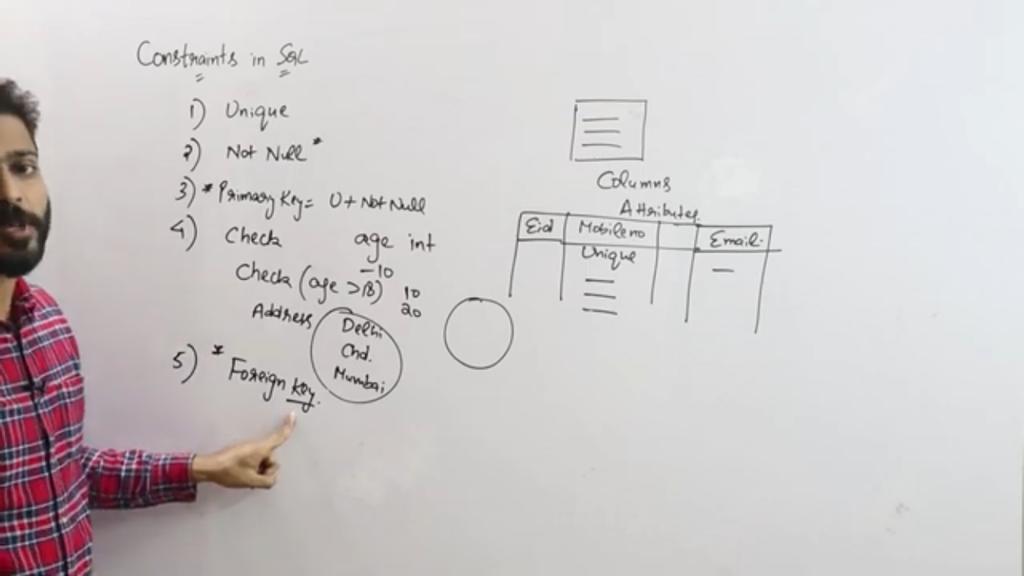 Constraints in SQL
1) Unique
2) Not Null *
3) * Primary Key = U + Not Null
4) Check age int
-10
Check (age > 18) 10
20
Address Delhi
Chd.
Mumbai
5) * Foreign Key.
Columns
Attributes
Eid Mobileno Email.
Unique